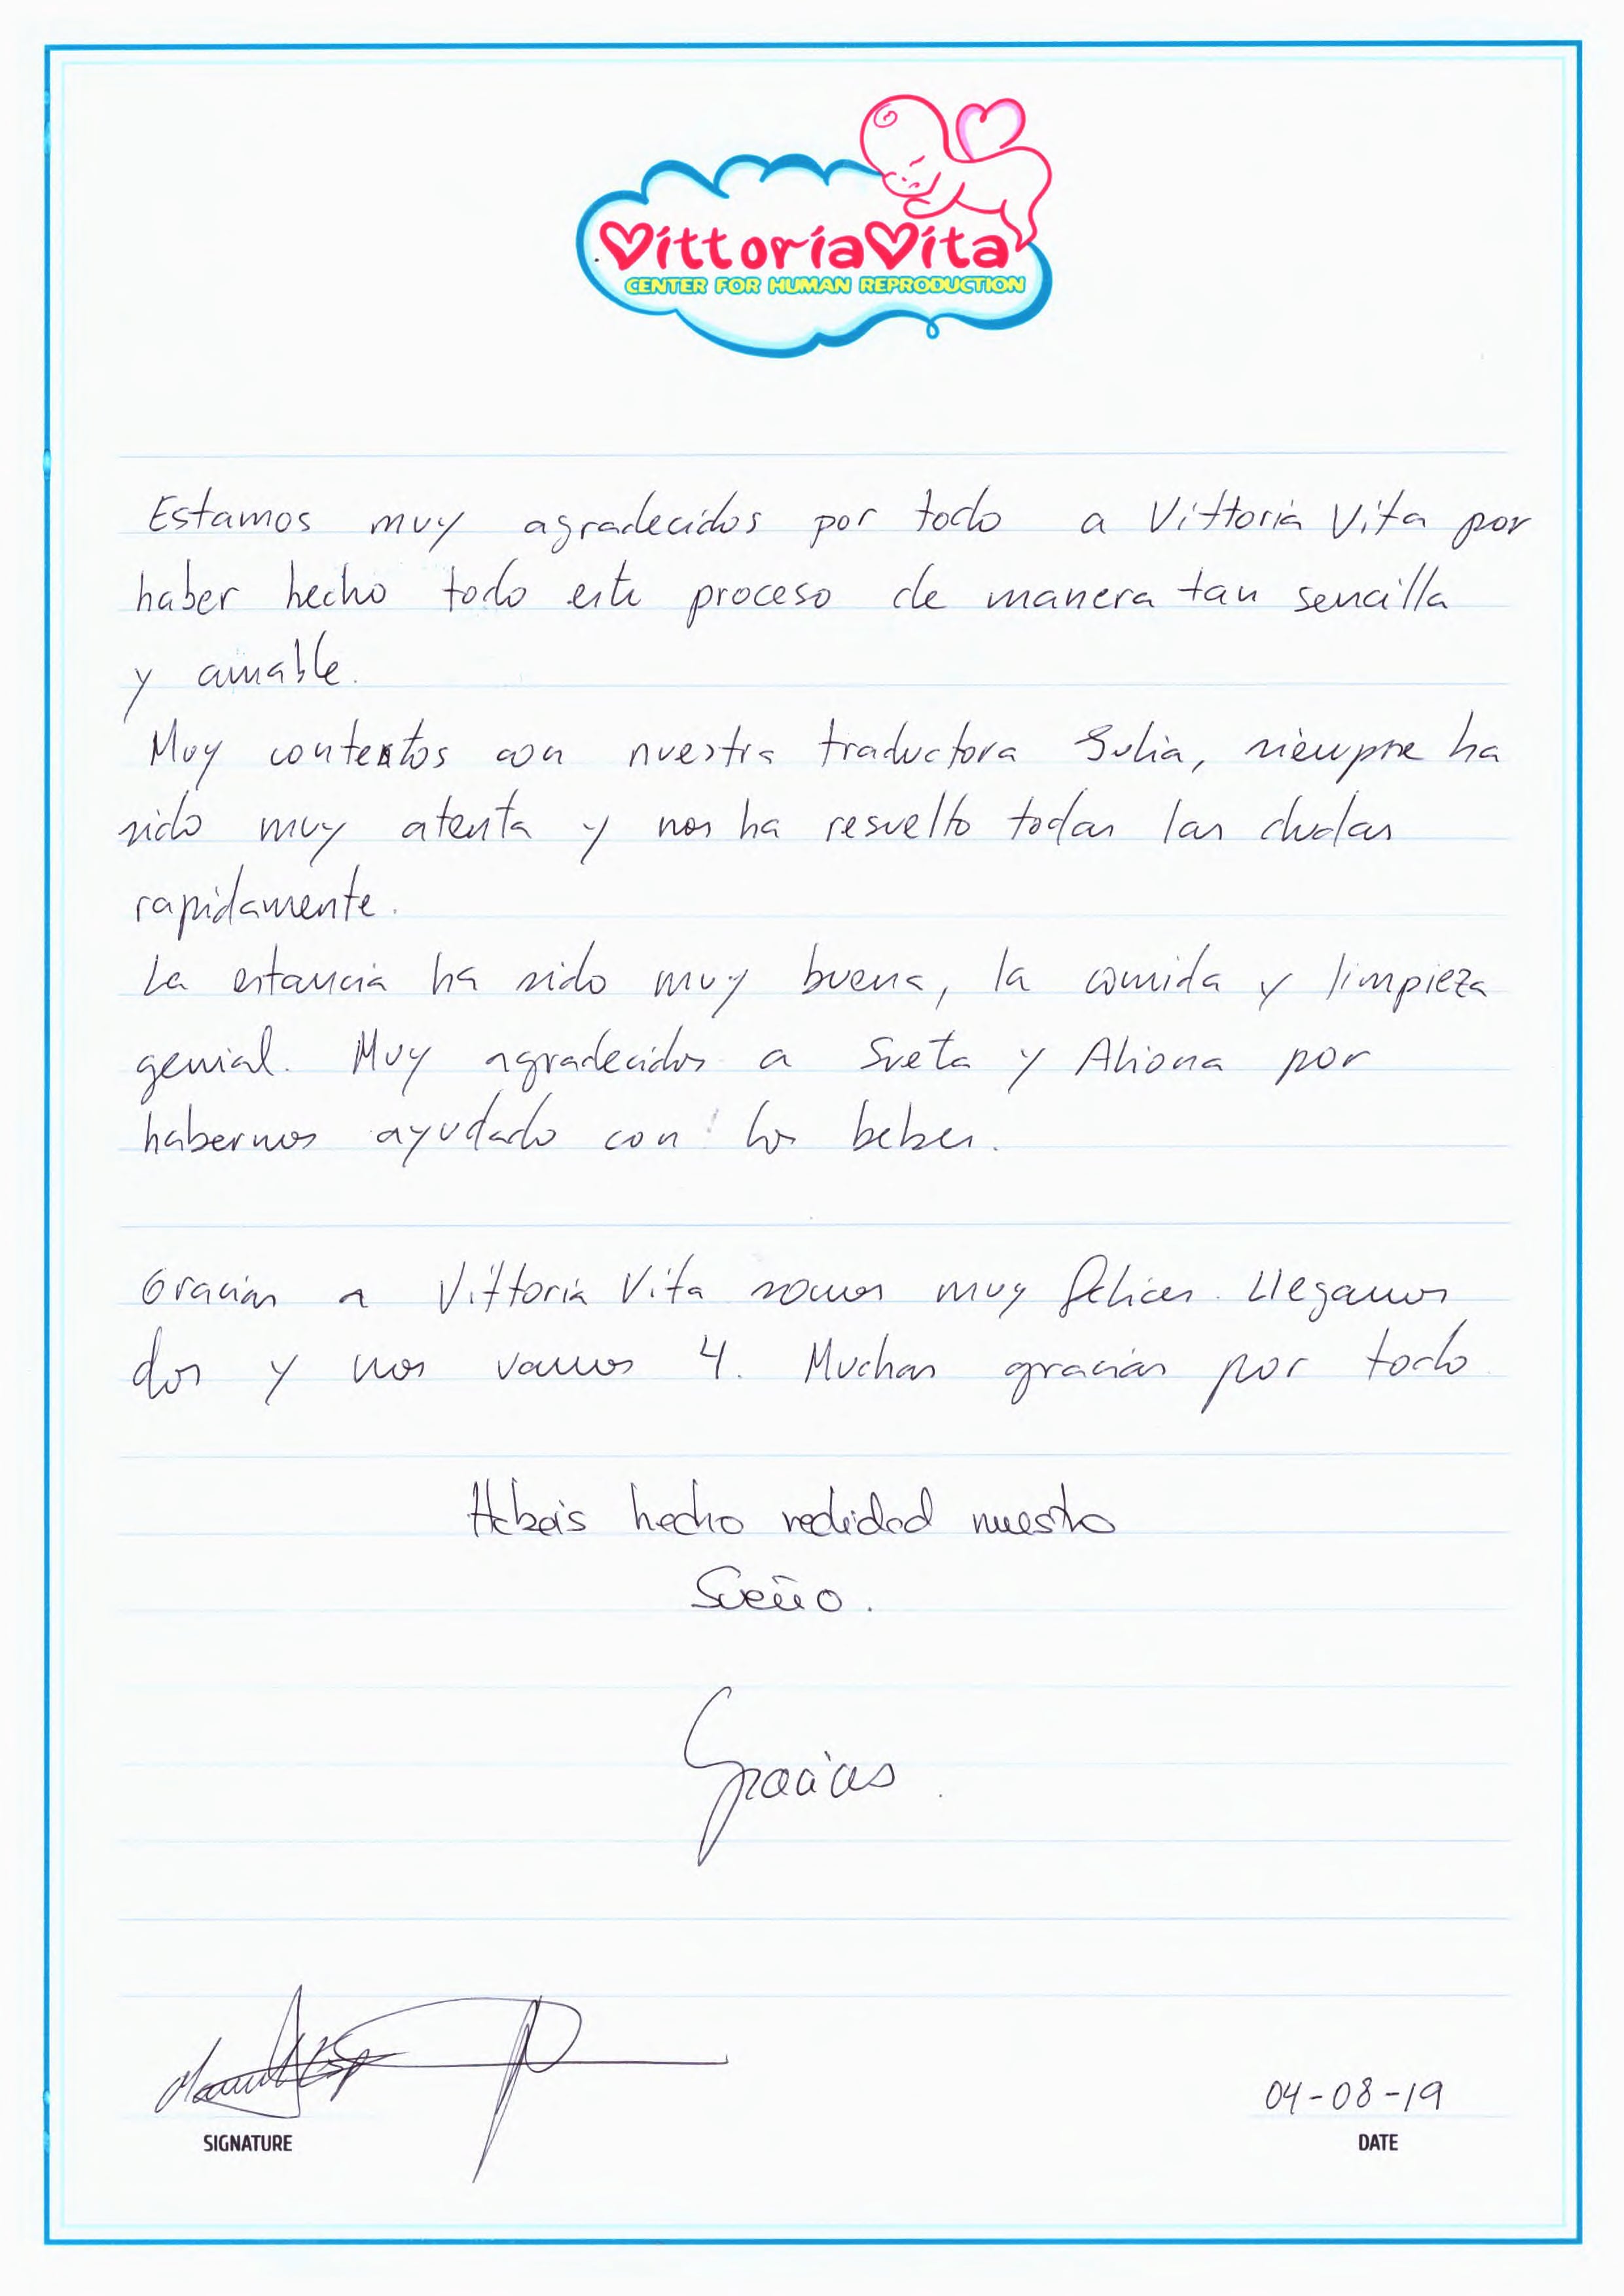 VittoriaVita
CENTER FOR HUMAN REPRODUCTION
Estamos muy agradecidos por todo a Vittoria Vita por
haber hecho todo este proceso de manera tan sencilla
y amable.
Muy contentos con nuestra traductora Julia, siempre ha
sido muy atenta y nos ha resuelto todas las dudas
rapidamente.
La estancia ha sido muy buena, la comida y limpieza
genial. Muy agradecidos a Sveta y Aliona por
habernos ayudado con los bebes.
Gracias a Vittoria Vita somos muy felices. Llegamos
dos y nos vamos 4. Muchas gracias por todo.
Habeis hecho realidad nuestro
Sueño.
Gracias.
04-08-19
SIGNATURE
DATE